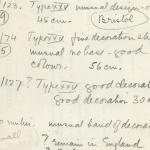 123. Type XXX unusual design - 
45 cm. Bristol
174 Type XXV fine decoration
unusual no base - good
colour. 56 cm.
127? Type XXV good decorat
good decoration 30
unusual band of decora
? remain in England